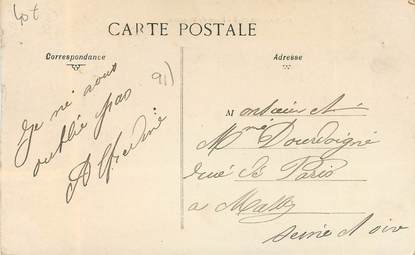 Lot
CARTE POSTALE
Correspondance
Adresse
91)
Je ne vous
oublie pas
Alfredine
Monsieur et
Mme Dourdoigné
rue de Paris
a Massy
Seine et Oise